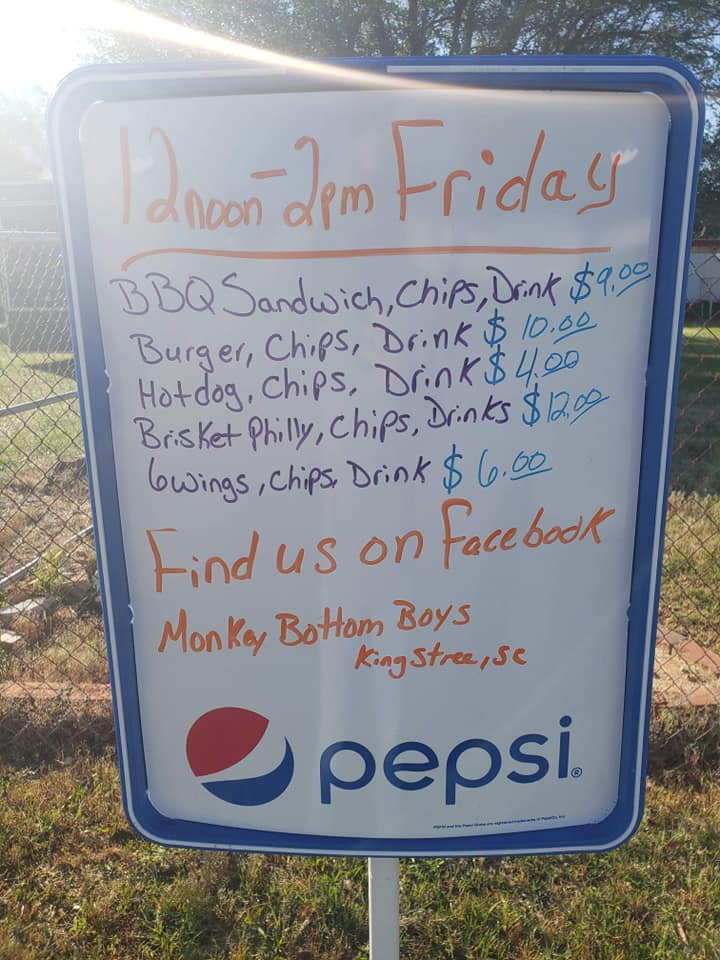 12noon-2pm Friday
BBQ Sandwich, Chips, Drink $9.00
Burger, Chips, Drink $10.00
Hotdog, Chips, Drink $4.00
Brisket Philly, Chips, Drinks $12.00
6wings, Chips, Drink $6.00
Find us on Facebook
Monkey Bottom Boys
Kingstree, SC
pepsi®